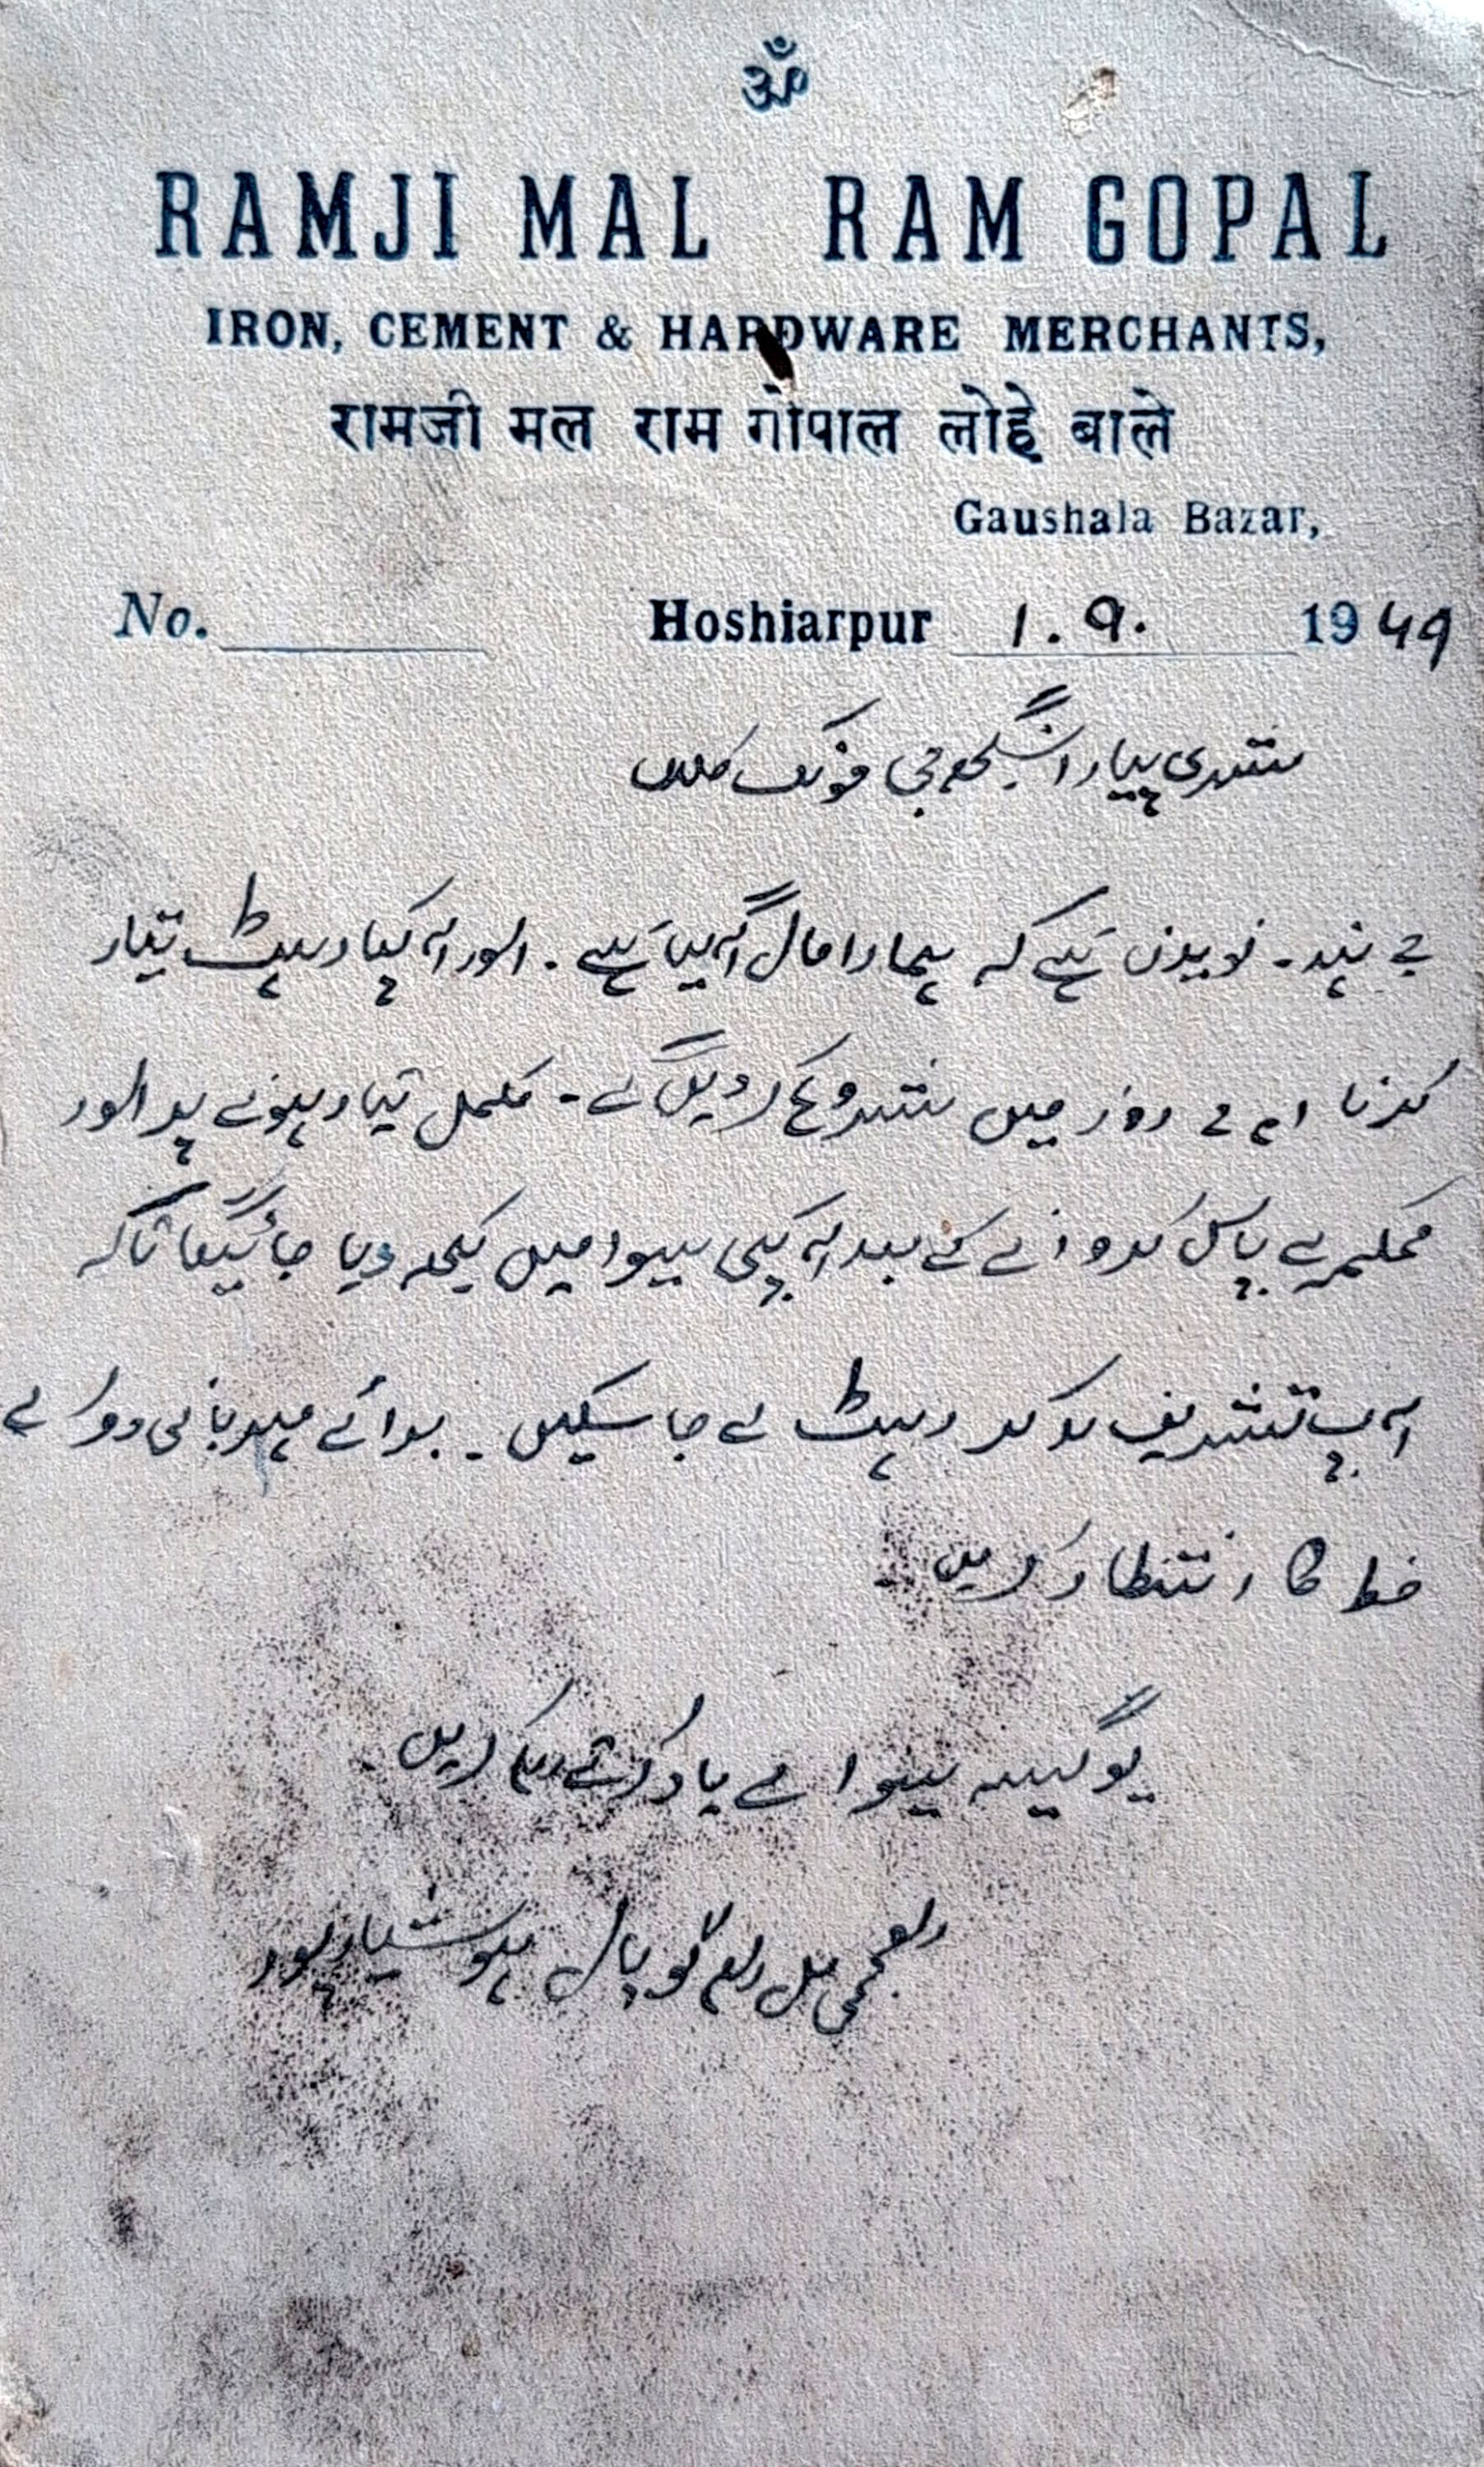 ॐ
RAMJI MAL RAM GOPAL
IRON, CEMENT & HARDWARE MERCHANTS,
रामजी मल राम गोपाल लोहे बाले
Gaushala Bazar,
No. Hoshiarpur 1.9. 1949
شری پیارا سنگھ جی
جے ہند۔ نویدن ہے کہ ہمارا مال آ گیا ہے۔ اور آپکا رہٹ تیار
کرنا روز میں شروع کر دیں گے۔ مکمل تیار ہونے پر اور
محکمہ سے پاس کروانے کے بعد آپکی سیوا میں لکھ دیا جائیگا تاکہ
آپ تشریف لا کر رہٹ لے جا سکیں۔ برائے مہربانی دوسرے
خط کا انتظار کریں
یوگیہ سیوا سے یاد کرتے رہا کریں۔
رامجی مل رام گوپال ہوشیارپور